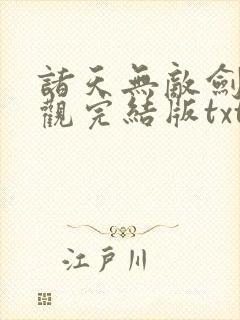 諸天無敵劍
觀完結版txt
江戸川